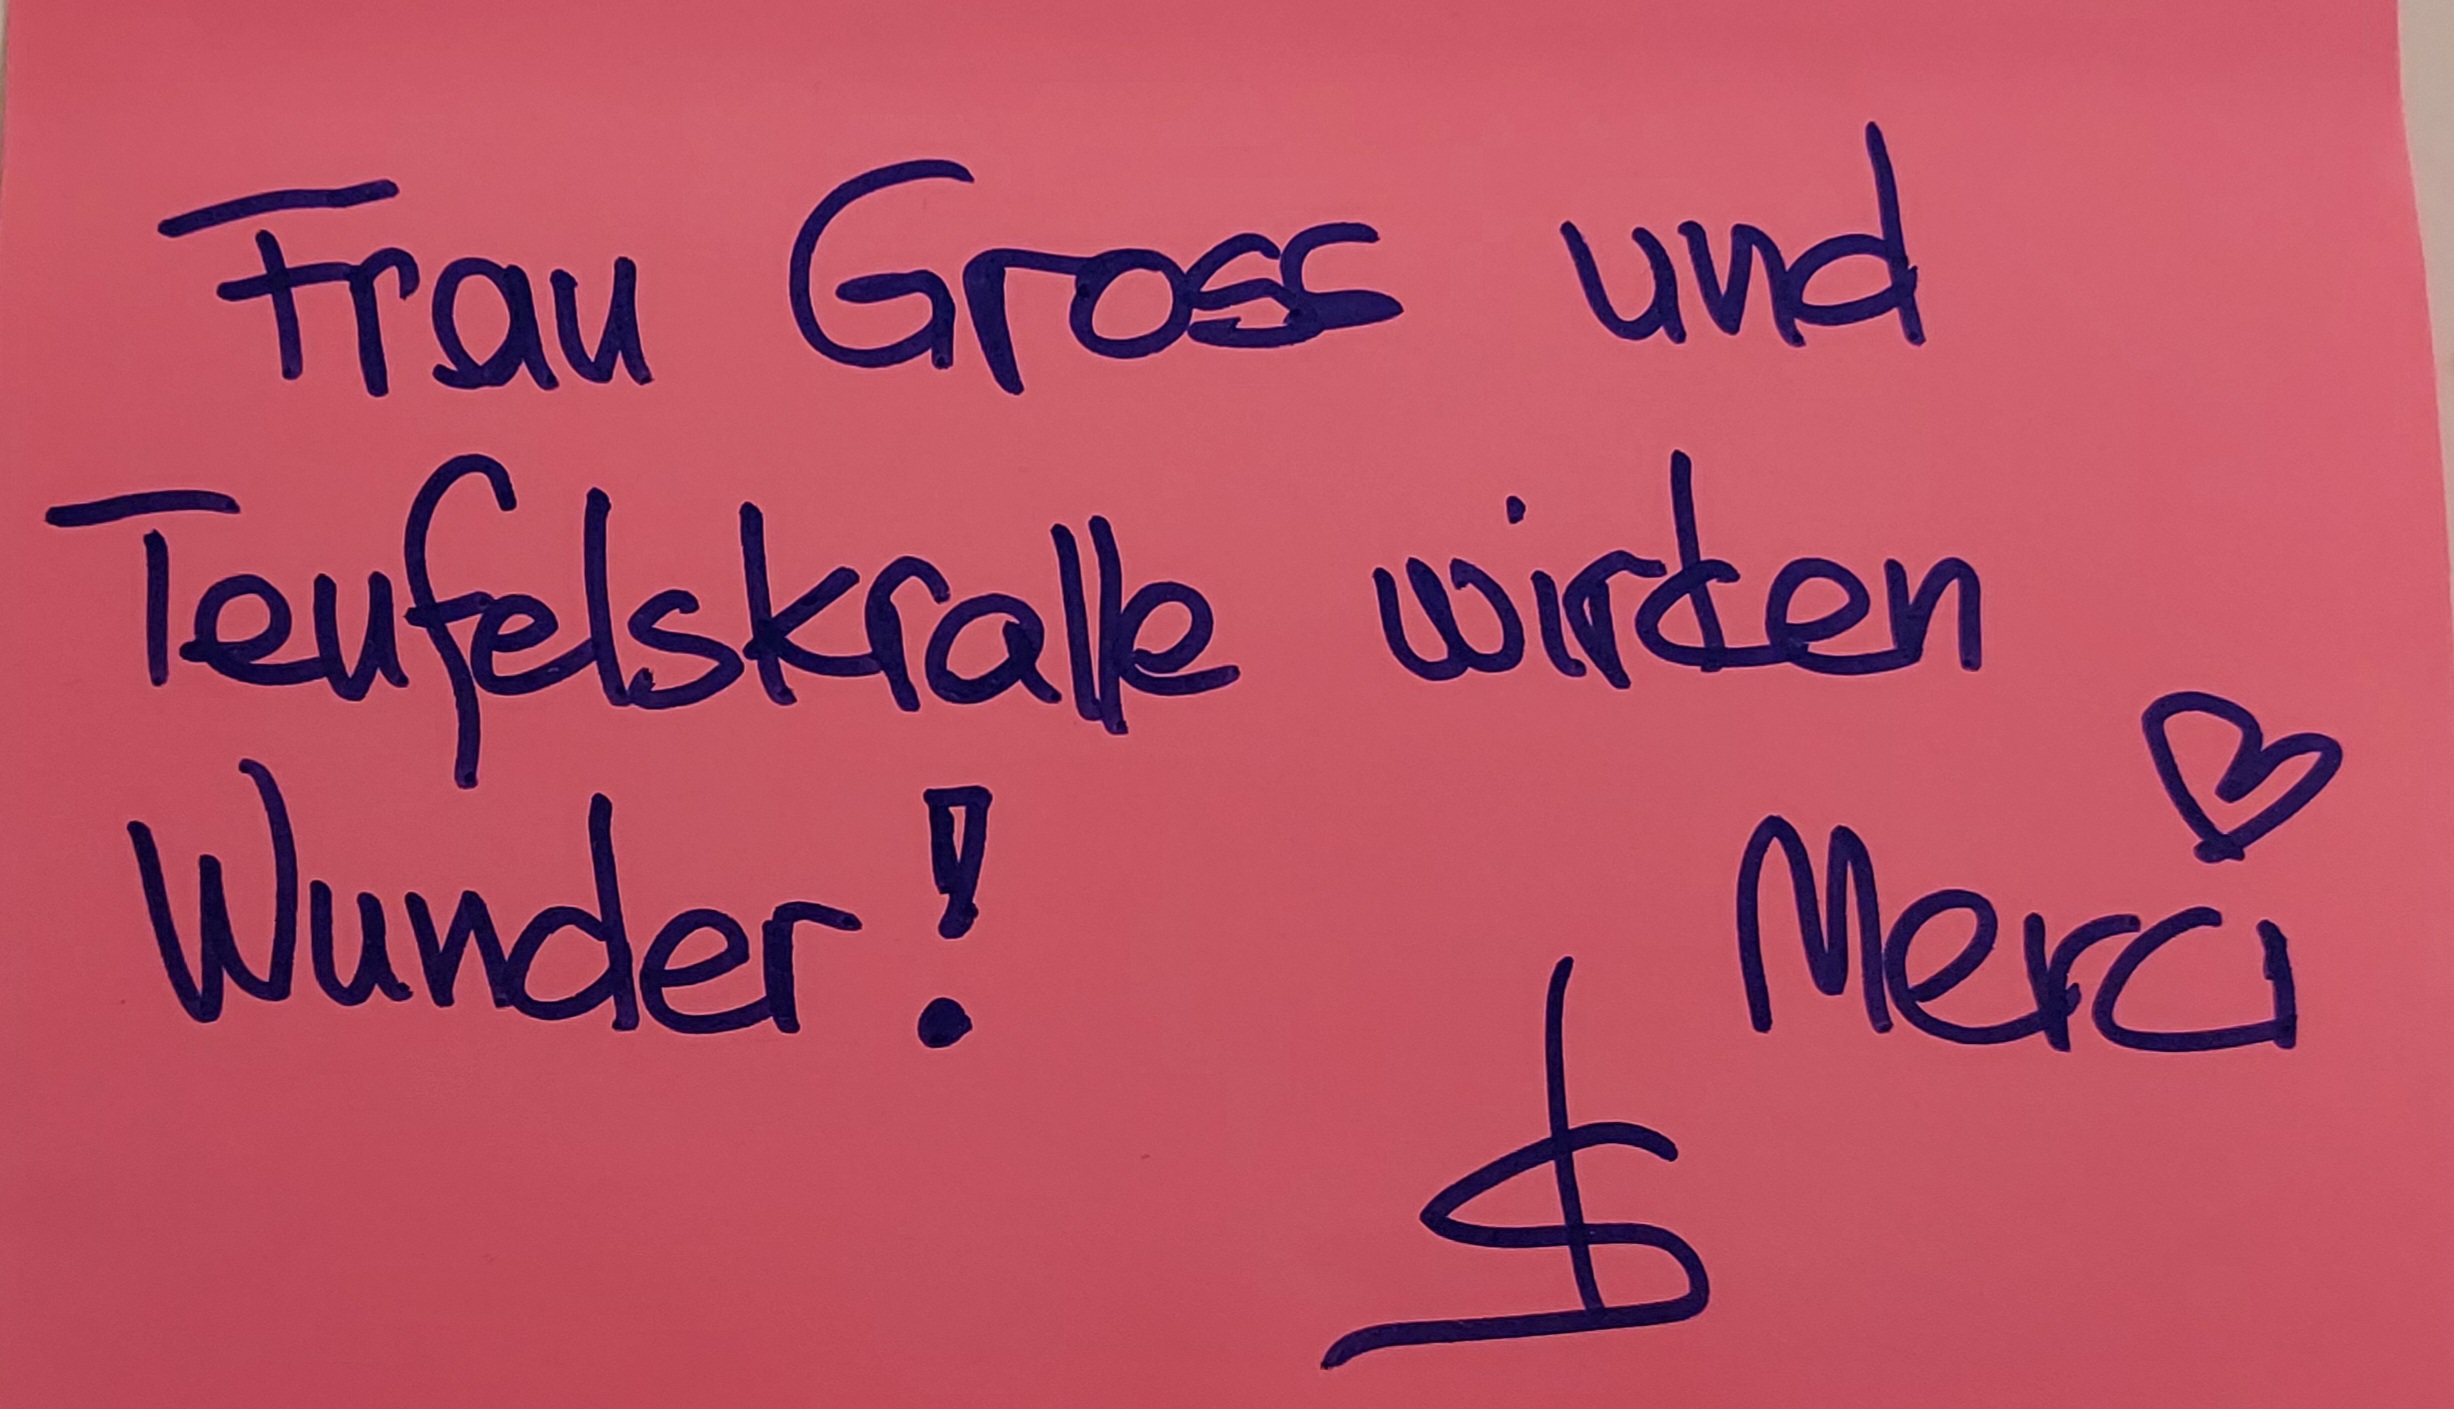 Frau Gross und
Teufelskralle wirken
Wunder!
Merci